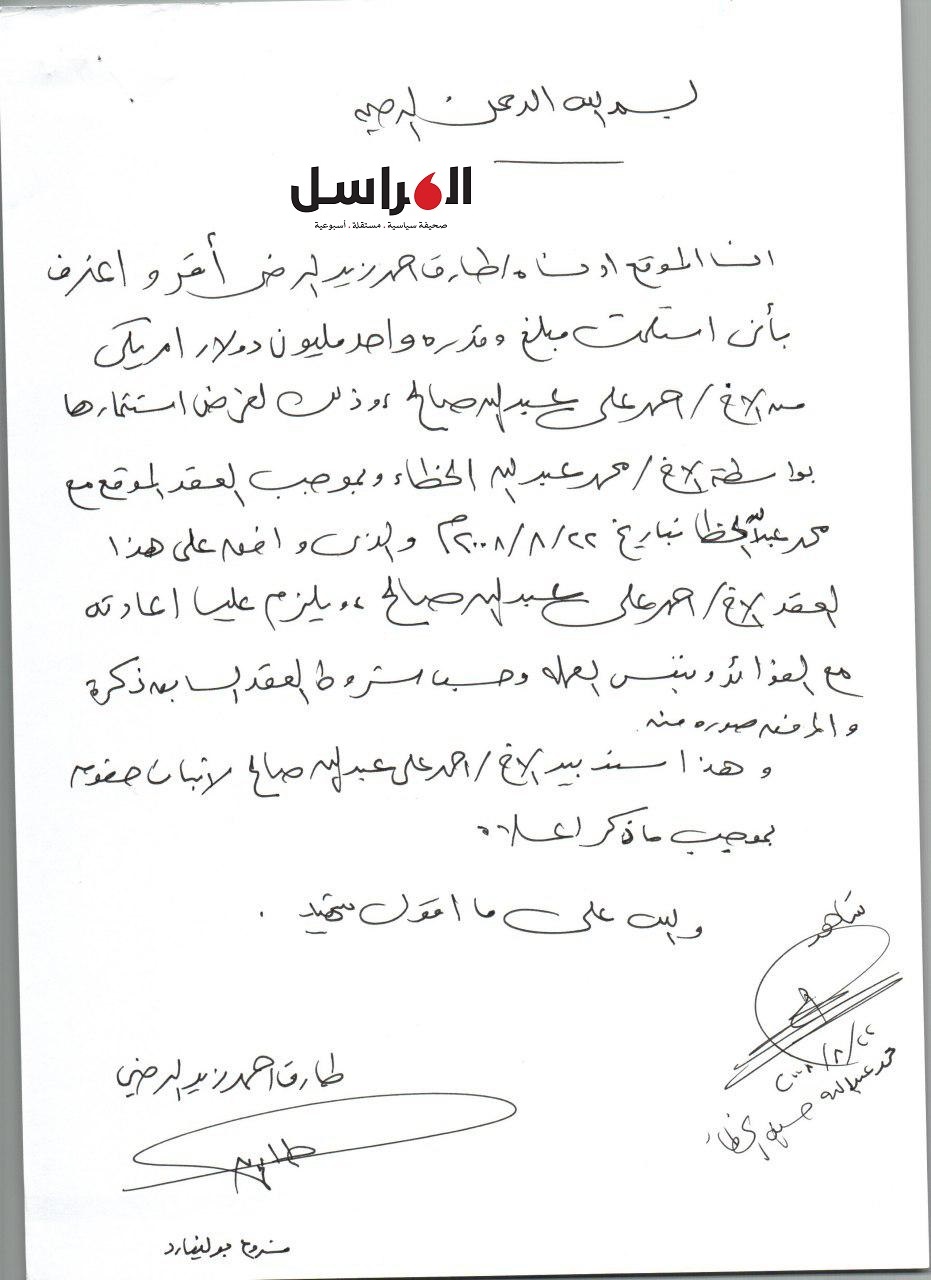 بسم الله الرحمن الرحيم
المراسل
صحيفة سياسية . مستقلة . أسبوعية
انا الموقع ادناه / طارق احمد زيد الرضي أقر و اعترف
بأني استلمت مبلغ وقدره واحد مليون دولار امريكي
من الاخ / احمد علي عبدالله صالح ، وذلك لغرض استثمارها
بواسطة الاخ / محمد عبدالله الحظاء وبموجب العقد الموقع مع
محمد عبدالله الحظا بتاريخ ٢٢/٨/٢٠٠٨م والذي وافق على هذا
العقد الاخ / احمد علي عبدالله صالح ، ويلزم علينا اعادته
مع الفوائد وبنفس العمله وحسب شروط العقد السابق ذكرة
والمرفق صوره منه
وهذا سند بيد الاخ / احمد علي عبدالله صالح لاثبات حقوقه
بموجب ماذكر اعلاه
والله على ما اقول شهيد .
شاهد
٢٢/٨/٢٠٠٨
محمد عبدالله حسين الحظاء
طارق احمد زيد الرضي
طارق
مشروع بوليفارد